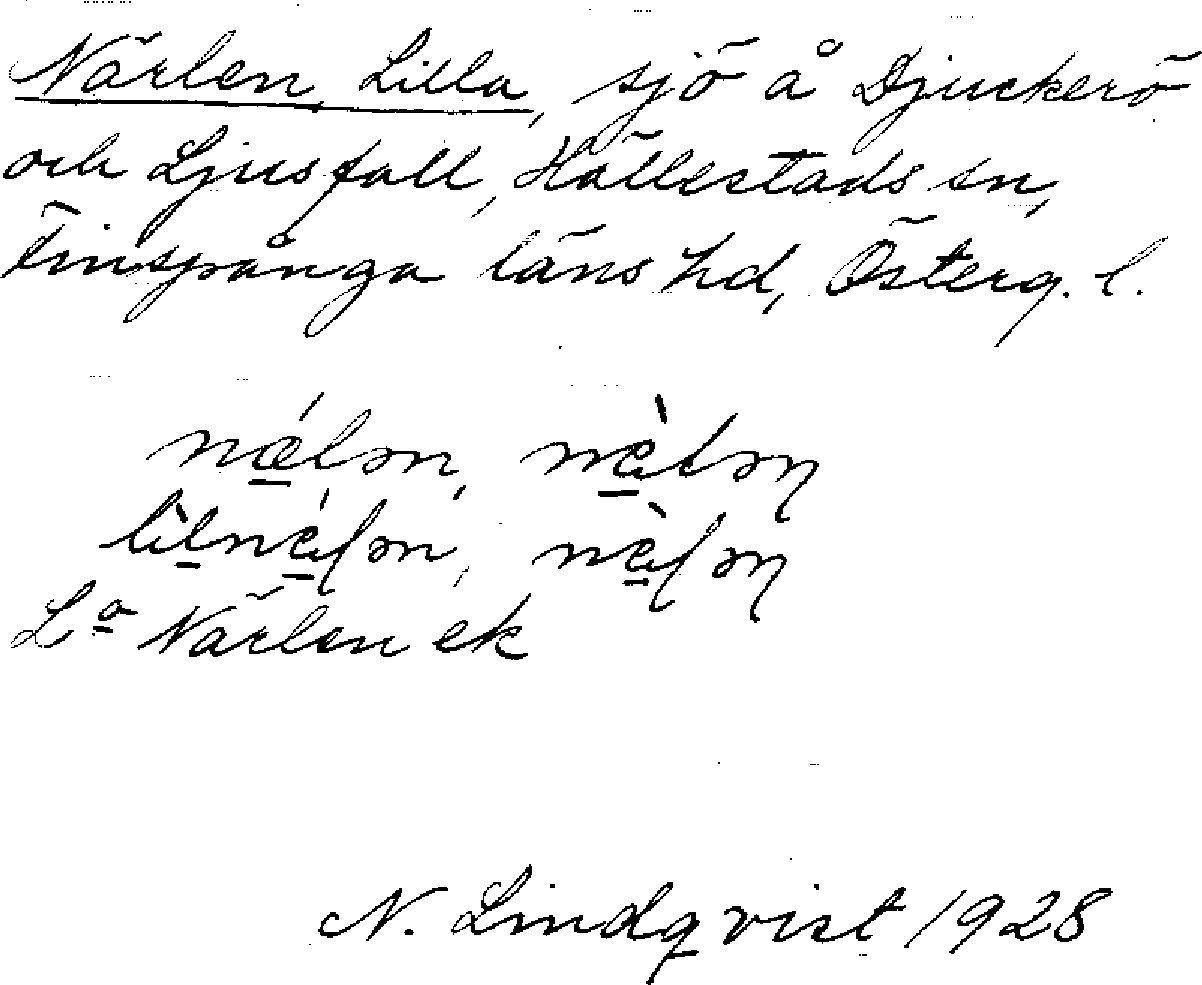 Närlen, Lilla, sjö å Djuckerö
och Ljusfall, Hällestads sn,
Finspånga läns hd, Österg. l.
nǽlən, næ̀lən
lìlnǽlən, næ̀lən
La Närlen ek
N. Lindqvist 1928